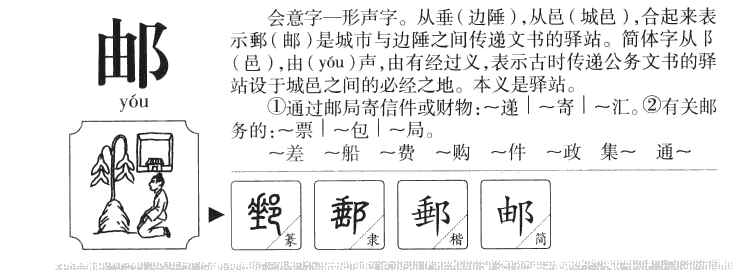 邮
yóu
会意字—形声字。从垂(边陲),从邑(城邑),合起来表
示郵(邮)是城市与边陲之间传递文书的驿站。简体字从阝
(邑),由(yóu)声,由有经过义,表示古时传递公务文书的驿
站设于城邑之间的必经之地。本义是驿站。
①通过邮局寄信件或财物:~递|~寄|~汇。②有关邮
务的:~票|~包|~局。
~差 ~船 ~费 ~购 ~件 ~政 集~ 通~
郵 篆 郵 隶 郵 楷 邮 简